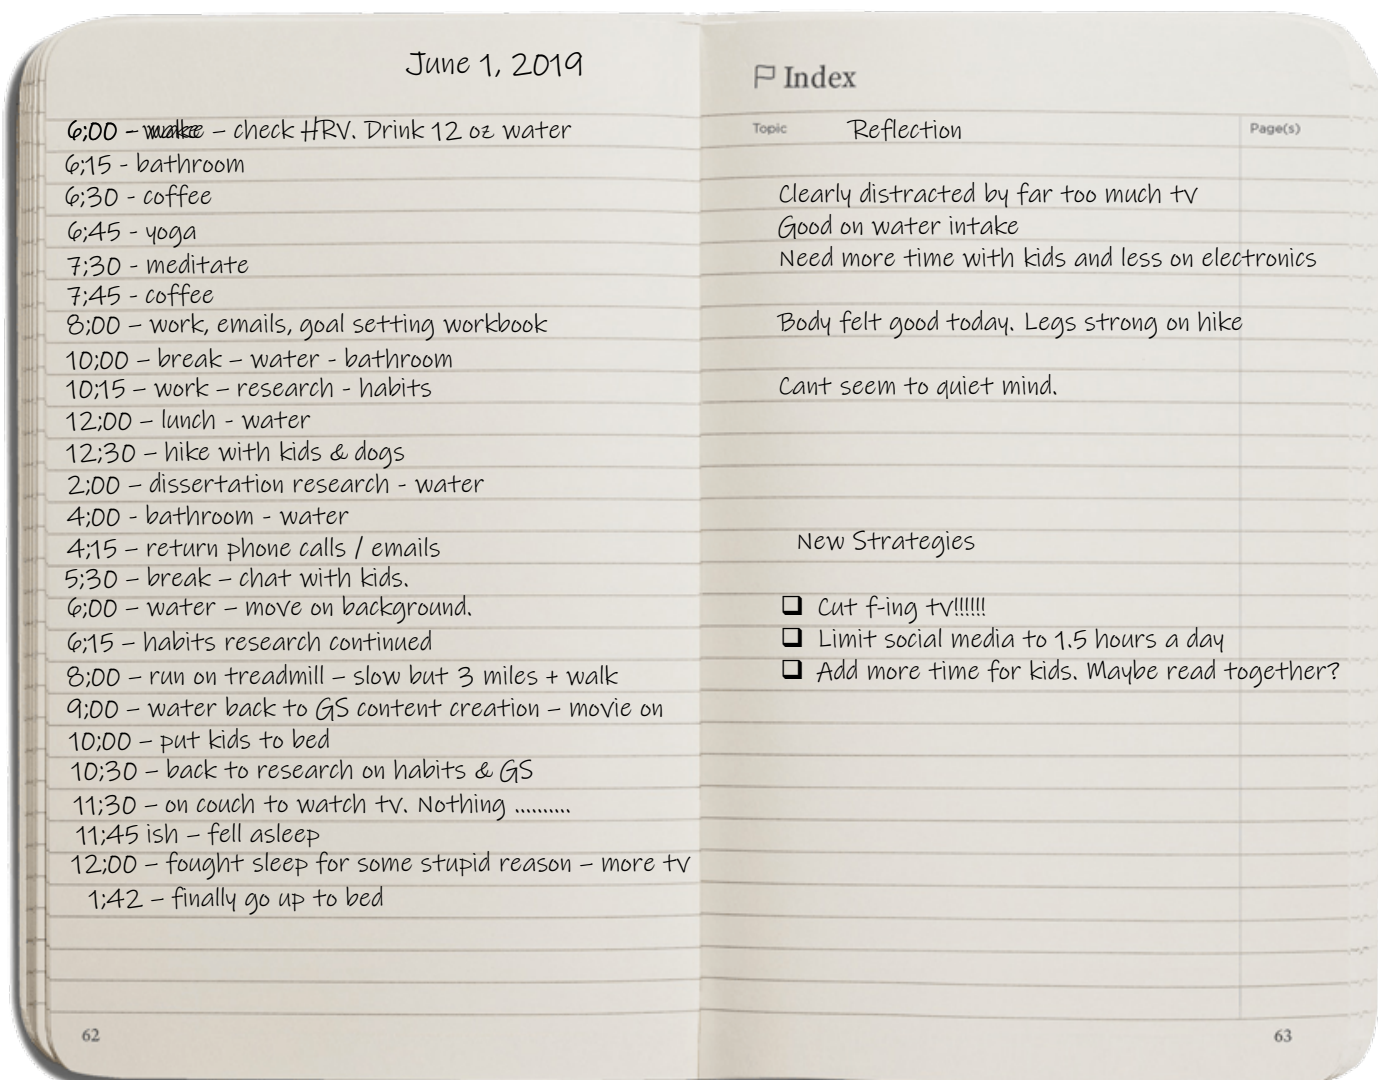 June 1, 2019
6;00 – wake – check HRV. Drink 12 oz water
6;15 - bathroom
6;30 - coffee
6;45 - yoga
7;30 - meditate
7;45 - coffee
8;00 – work, emails, goal setting workbook
10;00 – break – water - bathroom
10;15 – work – research - habits
12;00 – lunch - water
12;30 – hike with kids & dogs
2;00 – dissertation research - water
4;00 - bathroom - water
4;15 – return phone calls / emails
5;30 – break – chat with kids.
6;00 – water – move on background.
6;15 – habits research continued
8;00 – run on treadmill – slow but 3 miles + walk
9;00 – water back to GS content creation – movie on
10;00 – put kids to bed
10;30 – back to research on habits & GS
11;30 – on couch to watch tv. Nothing ..........
11;45 ish – fell asleep
12;00 – fought sleep for some stupid reason – more tv
1;42 – finally go up to bed
62
Index
Topic Reflection Page(s)
Clearly distracted by far too much tv
Good on water intake
Need more time with kids and less on electronics
Body felt good today. Legs strong on hike
Cant seem to quiet mind.
New Strategies
❑ Cut f-ing tv!!!!!!
❑ Limit social media to 1.5 hours a day
❑ Add more time for kids. Maybe read together?
63